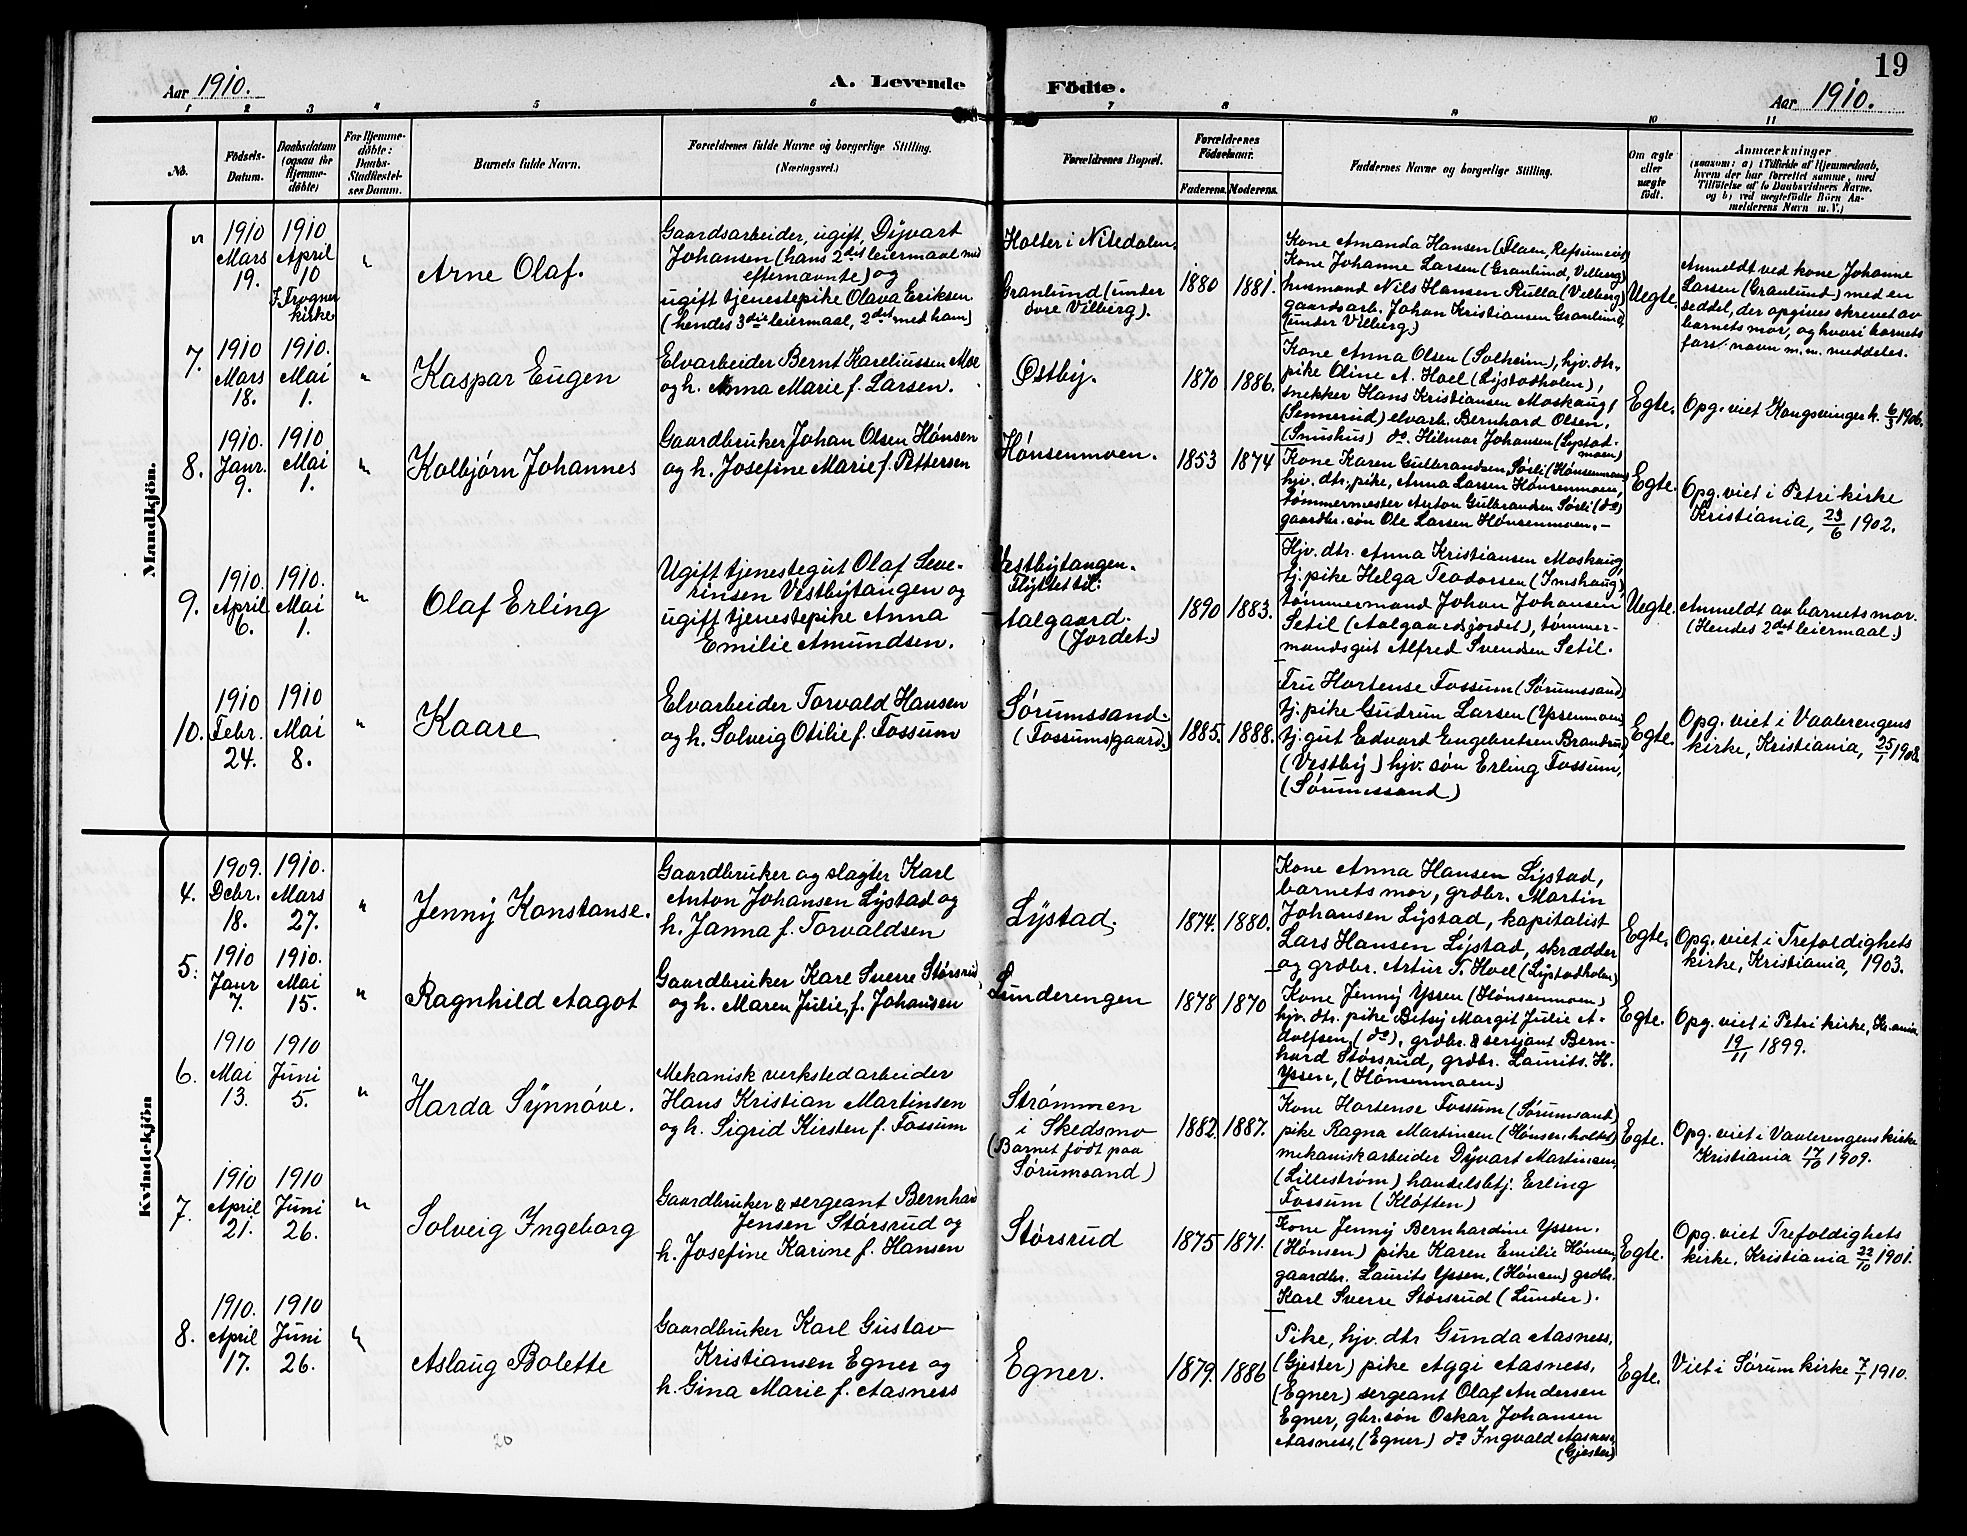 19
Aar 1910.
A. Levende
Födte.
Aar 1910.
1 2 3 4 5 6 7 8 9 10 11
No.
Födsels-
Datum.
Daabsdatum
(ogsaa for
Hjemme-
döbte)
For Hjemme-
döbte:
Daabs-
Stadfæstel-
ses Datum.
Barnets fulde Navn.
Forældrenes fulde Navne og borgerlige Stilling.
(Næringsvei.)
Forældrenes Bopæl.
Forældrenes
Födselsaar.
Faderens.
Moderens.
Faddernes Navne og borgerlige Stilling.
Om ægte
eller
uægte
födt.
Anmærkninger
(saasom: a) i Tilfælde af Hjemmedaab,
hvem der har forrettet samme, med
Tilföielse af to Daabsvidners Navne,
og b) ved uægtefödte Börn An-
melderens Navn m. V.)
Mandkjön.
1910
Mars
19.
1910
April
10
I Frogner
kirke
"
Arne Olaf.
Gaardsarbeider, ugift, Dyvart
Johansen (hans 2det leiermaal med
efternavnte) og
ugift tjenestepike Olava Eriksen
(hendes 3die leiermaal, 2det med ham)
Holter i Nitedalen.
Granlund (under
øvre Vilberg).
1880
1881.
Kone Amanda Hansen (Flaen, Refsumeie)
Kone Johanne Larsen (Granlund, Vilberg)
husmand Nils Hansen Rulla (Vilberg)
gaardsarb. Johan Kristiansen Granlund,
(under Vilberg)
Uegte.
Anmeldt ved kone Johanne
Larsen (Granlund) med en
seddel, der opgives skrevet av
barnets mor, og hvori barnets
fars navn m. m. meddeles.
7.
1910
Mars
18.
1910.
Mai
1.
"
Kaspar Eugen
Elvarbeider Bernt Kareliussen Moe
og h. Anna Marie f. Larsen.
Østby.
1870
1886.
Kone Anna Olsen (Solheim), hjv. dtr.
pike Oline A. Hoel (Lystadholen),
snekker Hans Kristiansen Moskaug,
(Sennerud) elvarb. Bernhard Olsen,
(Snushus) do. Hilmar Johansen (Lystad-
moen)
Egte.
Opg. viet Kongsvinger k. 6/3 1906.
8.
1910.
Janr.
9.
1910
Mai
1.
"
Kolbjørn Johannes
Gaardbruker Johan Olsen Hønsen
og h. Josefine Marie f. Pettersen
Hønsenmoen.
1853
1874
Kone Karen Gulbrandsen Sørli (Hønsenmoen)
hjv. dtr. pike, Anna Larsen Hønsenmoen,
tømmermester Anton Gulbrandsen Sørli (do)
gaardbr. søn Ole Larsen Hønsenmoen. -
Egte.
Opg. viet i Petri kirke
Kristiania, 23/6 1902.
9.
1910.
April
6.
1910.
Mai
1.
"
Olaf Erling
Ugift tjenestegut Olaf Seve-
rinsen Vestbytangen og
ugift tjenestepike Anna
Emilie Amundsen.
Vestbytangen.
Flyttet til:
Aalgaard.
(Jordet.)
1890
1883.
Hjv. dtr. Anna Kristiansen Moskaug,
tj. pike Helga Teodorsen (Imshaug),
tømmermand Johan Johansen
Setil (Aalgaardsjordet), tømmer-
mandsgut Alfred Svendsen Setil.
Uegte.
Anmeldt av barnets mor.
(Hendes 2det leiermaal.)
10.
1910
Febr.
24.
1910
Mai
8.
"
Kaare
Elvarbeider Torvald Hansen
og h. Solveig Otilie f. Fossum
Sørumssand.
(Fossumsgaard.)
1885.
1888.
Fru Hortense Fossum (Sørumssand)
tj. pike Gudrun Larsen (Yssenmoen)
tj. gut Edvard Engebretsen Brandrud,
(Vestby) hjv. søn Erling Fossum,
(Sørumssand)
Egte.
Opg. viet i Vaalerengens
kirke, Kristiania, 25/1 1908.
Kvindekjön
4.
1909.
Debr.
18.
1910.
Mars
27.
"
Jenny Konstanse.
Gaardbruker og slagter Karl
Anton Johansen Lystad og
h. Janna f. Torvaldsen
Lystad.
1874.
1880.
Kone Anna Hansen Lystad,
barnets mor, grdbr. Martin
Johansen Lystad, kapitalist
Lars Hansen Lystad, skrædder
og grdbr. Artur T. Hoel (Lystadholen)
Egte.
Opg. viet i Trefoldighets
kirke, Kristiania, 1903.
5.
1910
Janr
7.
1910.
Mai
15.
"
Ragnhild Aagot
Gaardbruker Karl Sverre Størsrud
og h. Maren Julie, f. Johansen
Lunderengen
1878
1870
Kone Jenny Yssen (Hønsenmoen)
hjv. dtr. pike Betsy Margit Julie A-
dolfsen, (do), grdbr. & sersjant Bern-
hard Størsrud, grdbr. Laurits. H.
Yssen, (Hønsenmoen)
Egte.
Opg. viet i Petri kirke, Kr.ania
19/11 1899.
6.
1910
Mai
13.
1910
Juni
5.
"
Harda Synnøve.
Mekanisk verkstedarbeider
Hans Kristian Martinsen
og h. Sigrid Kirsten f. Fossum
Strømmen
i Skedsmo
(Barnet født paa
Sørumsand)
1882.
1887.
Kone Hortense Fossum (Sørumsand)
pike Ragna Martinsen (Hønsenholtet)
mekaniskarbeider Dyvart Martinsen,
(Lillestrøm) handelsbtj. Erling
Fossum (Kløften)
Egte.
Opg. viet i Vaalerengens kirke
Kristiania 17/10 1909.
7.
1910
April
21.
1910
Juni
26.
"
Solveig Ingeborg
Gaardbruker & sergeant Bernhard
Jensen Størsrud og
h. Josefine Karine f. Hansen
Størsrud
1875
1871.
Kone Jenny Bernhardine Yssen.
(Hønsen) pike Karen Emilie Hønsen,
gaardbr. Laurits Yssen, (Hønsen) grdbr.
Karl Sverre Størsrud (Lunder).
Egte.
Opg. viet Trefoldighets
kirke, Kristiania 22/10 1901.
8.
1910.
April
17.
1910
Juni
26.
"
Aslaug Bolette
Gaardbruker Karl Gustav
Kristiansen Egner og
h. Gina Marie f. Aasness
Egner.
1879.
1886
Pike, hjv. dtr Gunda Aasness,
(Gjester) pike Aggi Aasness,
(Egner) sergeant Olaf Andersen
Egner, gbr. søn Oskar Johansen
Aasness, (Egner) do Ingvald Aasness,
(Gjester)
Egte.
Viet i Sørum kirke 7/1 1910.
26